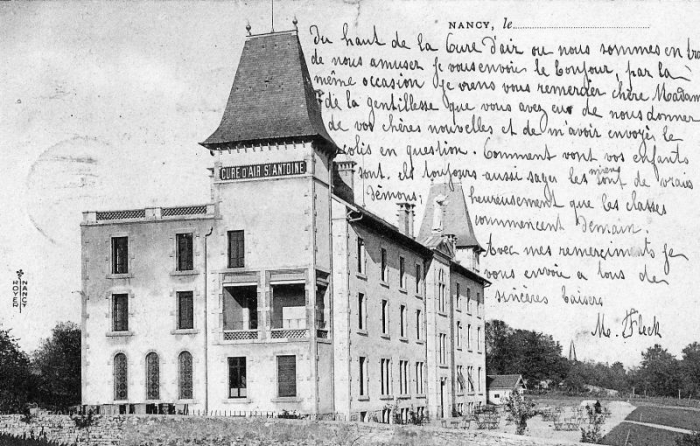 NANCY, le
Du haut de la Cure d'air ou nous sommes en tra
de nous amuser je vous envoie le bonjour, par la
même occasion je viens vous remercier chère Madam
de la gentillesse que vous avez eu de nous donner
de vos chères nouvelles et de m'avoir envoyés le
colis en question. Comment vont vos enfants
sont, ils toujours aussi sages les miens sont de vrais
démons, heureusement que les classes
commencent demain.
Avec mes remerciments je
vous envoie a tous de
sincères baisers
CURE D'AIR St ANTOINE
HOYER NANCY